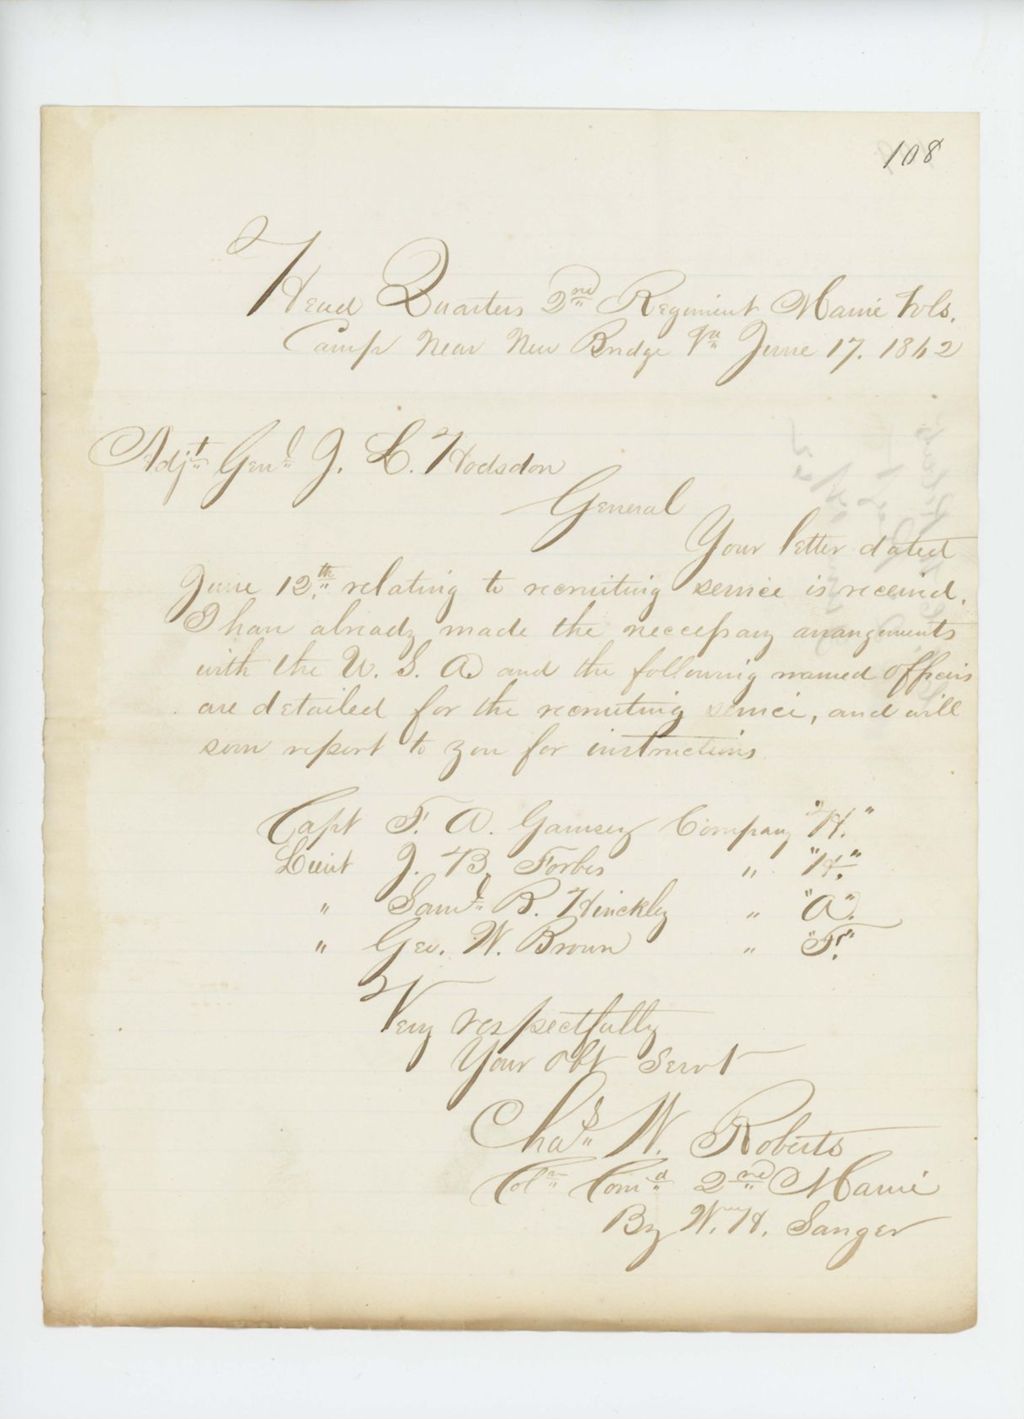 108
Head Quarters 2nd Regiment Maine Vols.
Camp Near New Bridge Va June 17. 1862
Adjt Genl J. L. Hodsdon
General
Your letter dated
June 12th relating to recruiting service is received.
I have already made the neccessary arrangements
with the U. S. A. and the following named officers
are detailed for the recruiting service, and will
soon report to you for instructions
Capt F. A. Garnsey Company "H."
Lieut J. B. Forbes " "H."
" Saml R. Hinckley " "A".
" Geo. W. Brown " "F."
Very respectfully
Your obt Servt
Chas W. Roberts
Col Comd 2nd Maine
By W. H. Sanger